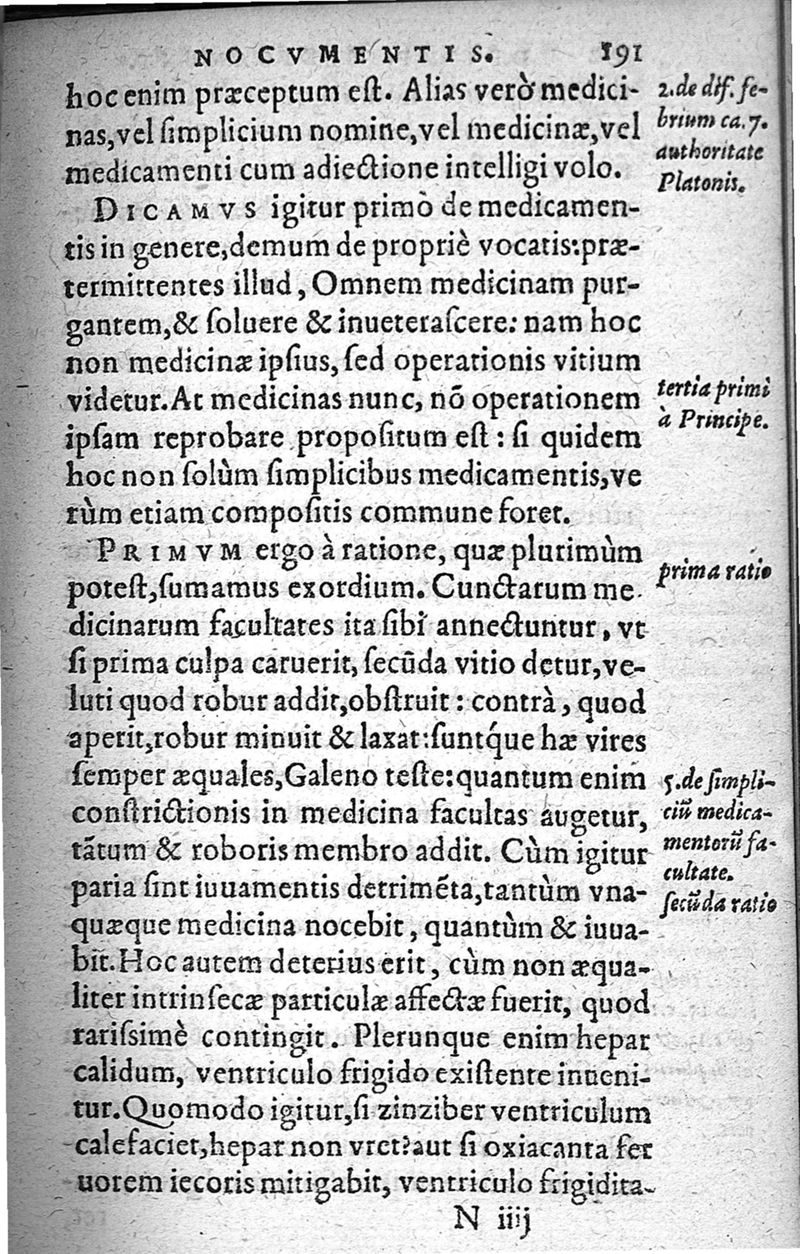 NOCVMENTIS. 191
hoc enim præceptum eſt. Alias verò medici-
nas,vel ſimplicium nomine,vel medicinæ,vel
medicamenti cum adiectione intelligi volo.
DICAMVS igitur primò de medicamen-
tis in genere,demum de propriè vocatis:præ-
termittentes illud, Omnem medicinam pur-
gantem,& ſoluere & inueteraſcere: nam hoc
non medicinæ ipſius, ſed operationis vitium
videtur.At medicinas nunc, nō operationem
ipſam reprobare propoſitum eſt : ſi quidem
hoc non ſolùm ſimplicibus medicamentis,ve
rùm etiam compoſitis commune foret.
PRIMVM ergo à ratione, quæ plurimùm
poteſt,ſumamus exordium. Cunctarum me-
dicinarum facultates ita ſibi annectuntur, vt
ſi prima culpa caruerit, ſecūda vitio detur,ve-
luti quod robur addit,obſtruit : contrà, quod
aperit,robur minuit & laxat:ſuntq́ue hæ vires
ſemper æquales,Galeno teſte:quantum enim
conſtrictionis in medicina facultas augetur,
tātum & roboris membro addit. Cùm igitur
paria ſint iuuamentis detrimēta,tantùm vna-
quæque medicina nocebit, quantùm & iuua-
bit.Hoc autem deterius erit, cùm non æqua-
liter intrinſecæ particulæ affectæ fuerit, quod
rariſsimè contingit. Plerunque enim hepar
calidum, ventriculo frigido exiſtente inueni-
tur.Quomodo igitur,ſi zinziber ventriculum
calefaciet,hepar non vret?aut ſi oxiacanta fer
uorem iecoris mitigabit, ventriculo frigidita-
N iiij
2.de dif. fe-
brium ca. 7.
authoritate
Platonis.
tertia primi
à Principe.
prima ratio
5.de ſimpli-
ciū medica-
mentorū fa-
cultate.
ſecūda ratio